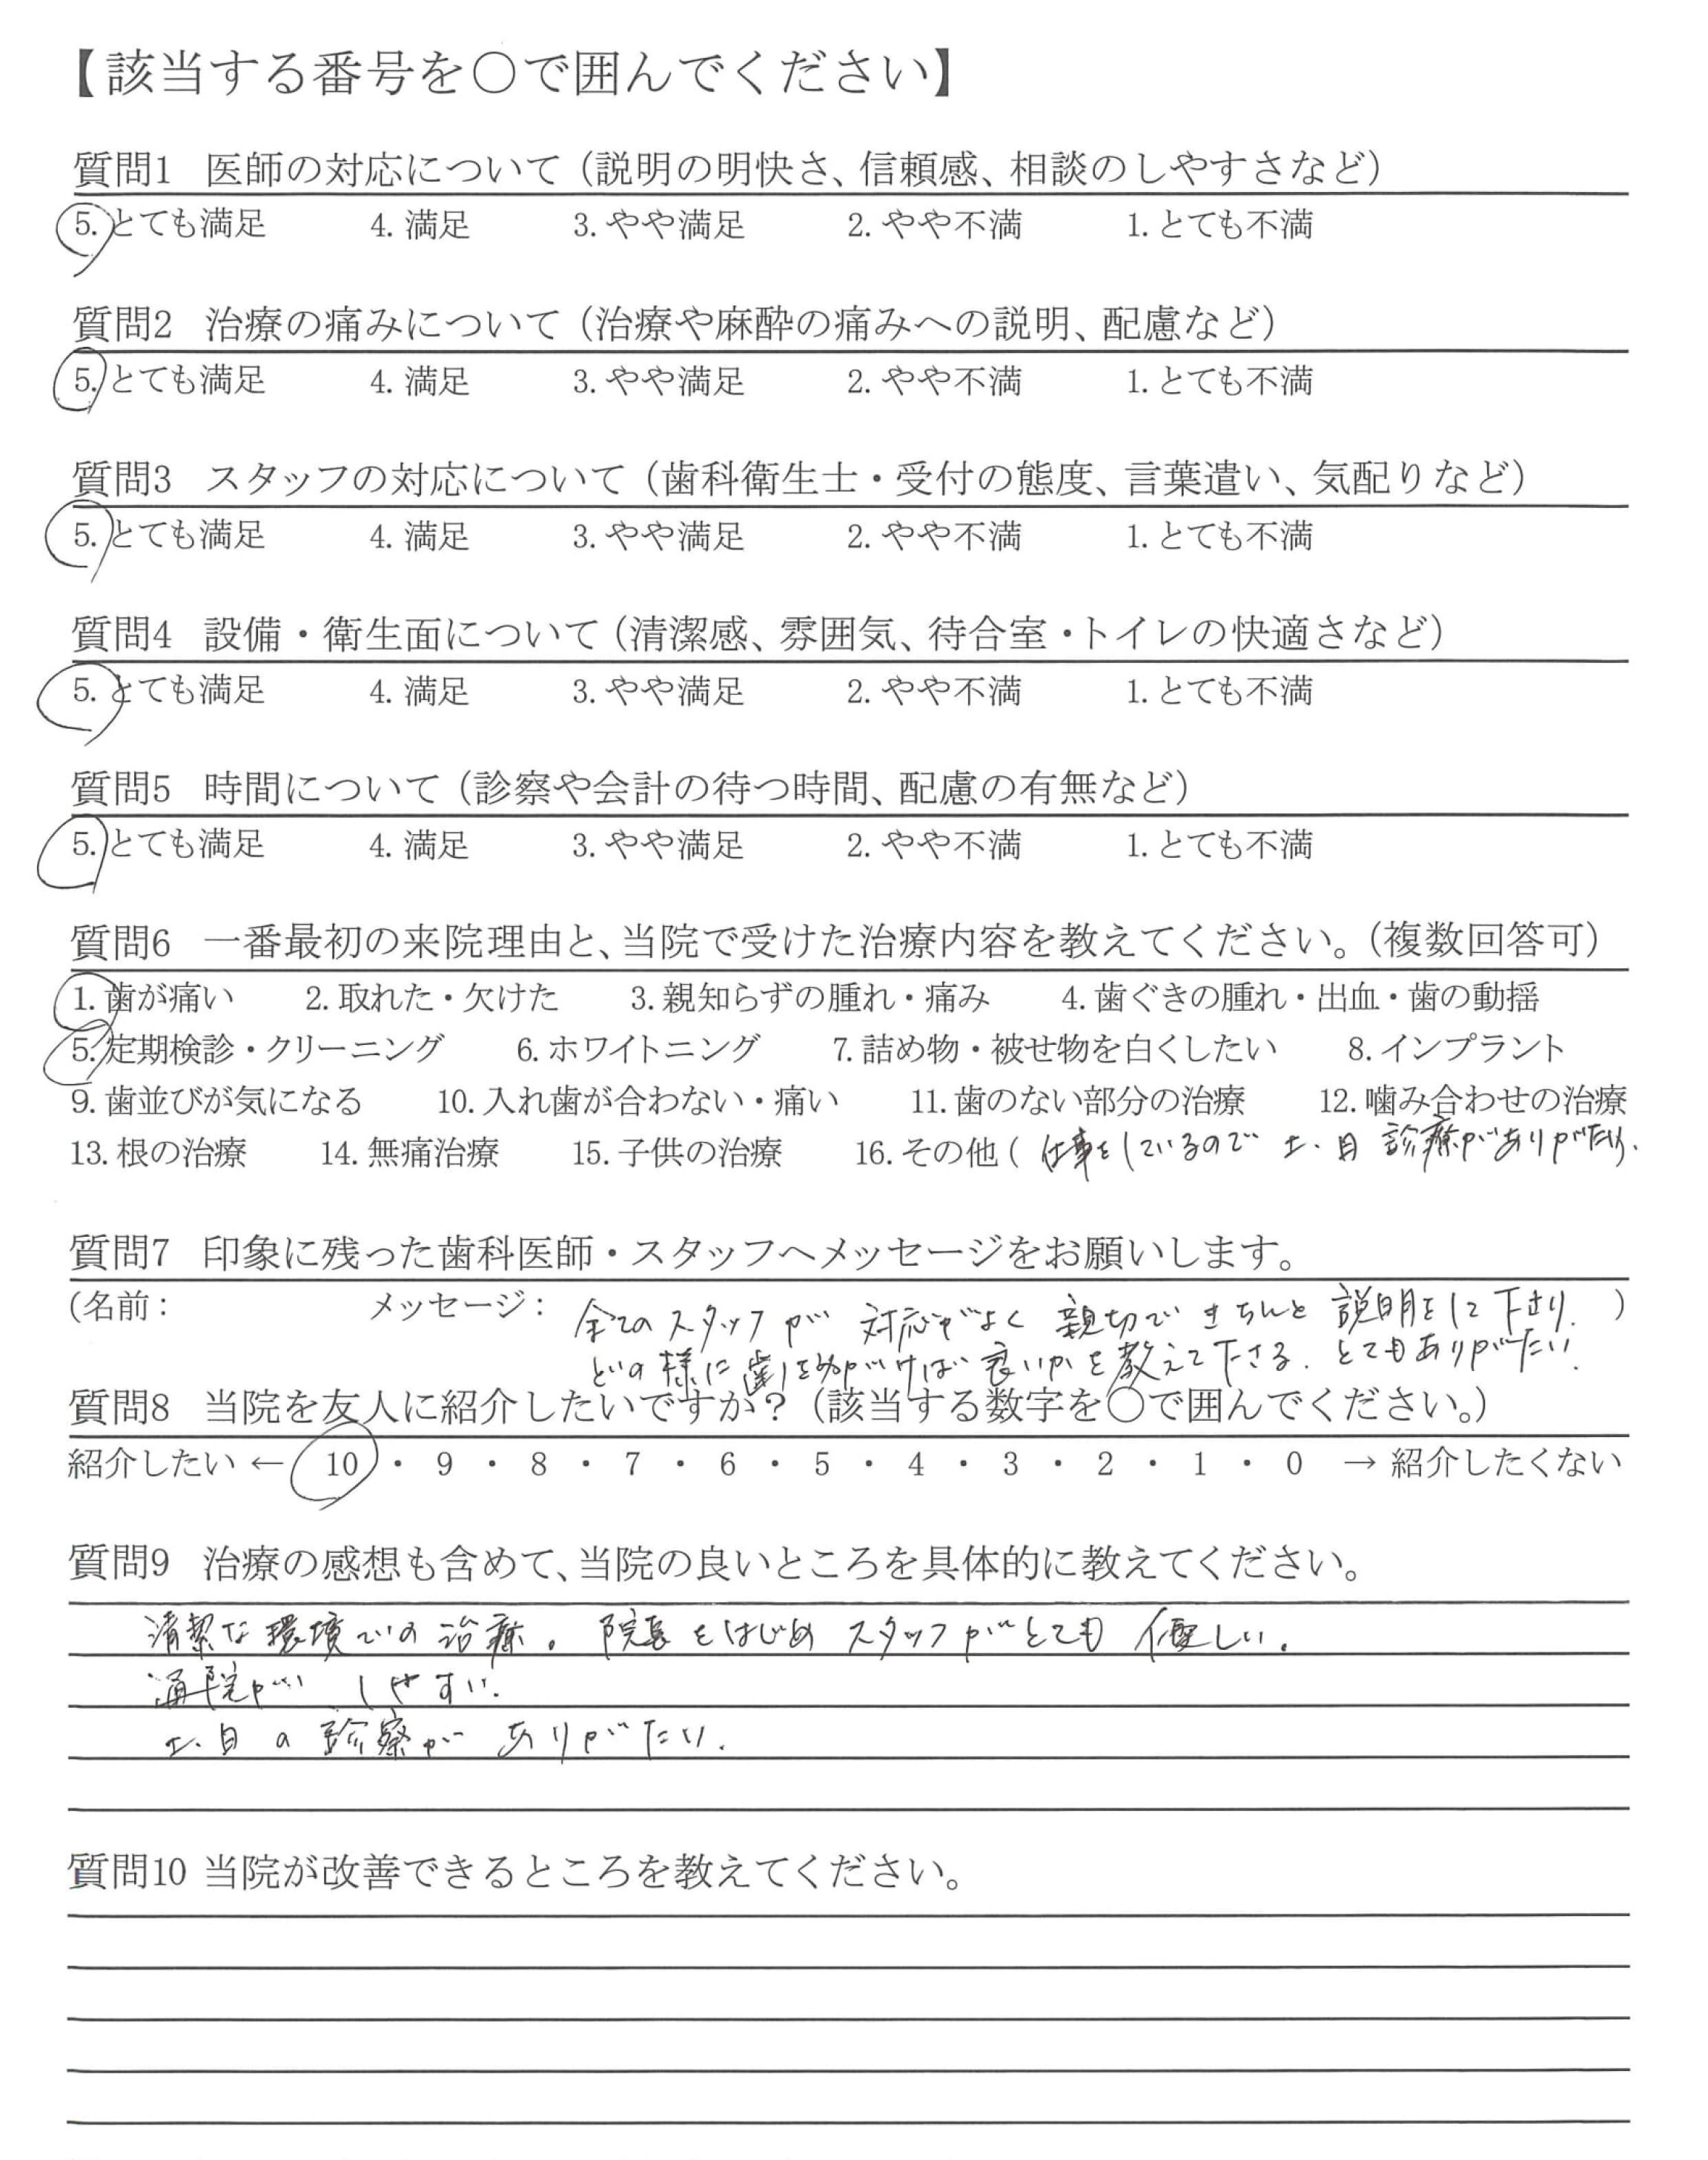 【該当する番号を○で囲んでください】
質問1 医師の対応について（説明の明快さ、信頼感、相談のしやすさなど）
5. とても満足 4. 満足 3. やや満足 2. やや不満 1. とても不満
質問2 治療の痛みについて（治療や麻酔の痛みへの説明、配慮など）
5. とても満足 4. 満足 3. やや満足 2. やや不満 1. とても不満
質問3 スタッフの対応について（歯科衛生士・受付の態度、言葉遣い、気配りなど）
5. とても満足 4. 満足 3. やや満足 2. やや不満 1. とても不満
質問4 設備・衛生面について（清潔感、雰囲気、待合室・トイレの快適さなど）
5. とても満足 4. 満足 3. やや満足 2. やや不満 1. とても不満
質問5 時間について（診察や会計の待つ時間、配慮の有無など）
5. とても満足 4. 満足 3. やや満足 2. やや不満 1. とても不満
質問6 一番最初の来院理由と、当院で受けた治療内容を教えてください。（複数回答可）
1. 歯が痛い 2. 取れた・欠けた 3. 親知らずの腫れ・痛み 4. 歯ぐきの腫れ・出血・歯の動揺
5. 定期検診・クリーニング 6. ホワイトニング 7. 詰め物・被せ物を白くしたい 8. インプラント
9. 歯並びが気になる 10. 入れ歯が合わない・痛い 11. 歯のない部分の治療 12. 噛み合わせの治療
13. 根の治療 14. 無痛治療 15. 子供の治療 16. その他（ 仕事をしているので 土、日 診療がありがたい.
質問7 印象に残った歯科医師・スタッフへメッセージをお願いします。
（名前： メッセージ： 全てのスタッフが 対応がよく 親切で きちんと 説明をして下さり. ）
どの様に歯をみがけば良いかを教えて下さる. とてもありがたい.
質問8 当院を友人に紹介したいですか？（該当する数字を○で囲んでください。）
紹介したい ← 10 ・ 9 ・ 8 ・ 7 ・ 6 ・ 5 ・ 4 ・ 3 ・ 2 ・ 1 ・ 0 → 紹介したくない
質問9 治療の感想も含めて、当院の良いところを具体的に教えてください。
清潔な環境での治療。院長をはじめ スタッフがとても 優しい.
通院が しやすい.
土、日の診察が ありがたい.
質問10 当院が改善できるところを教えてください。